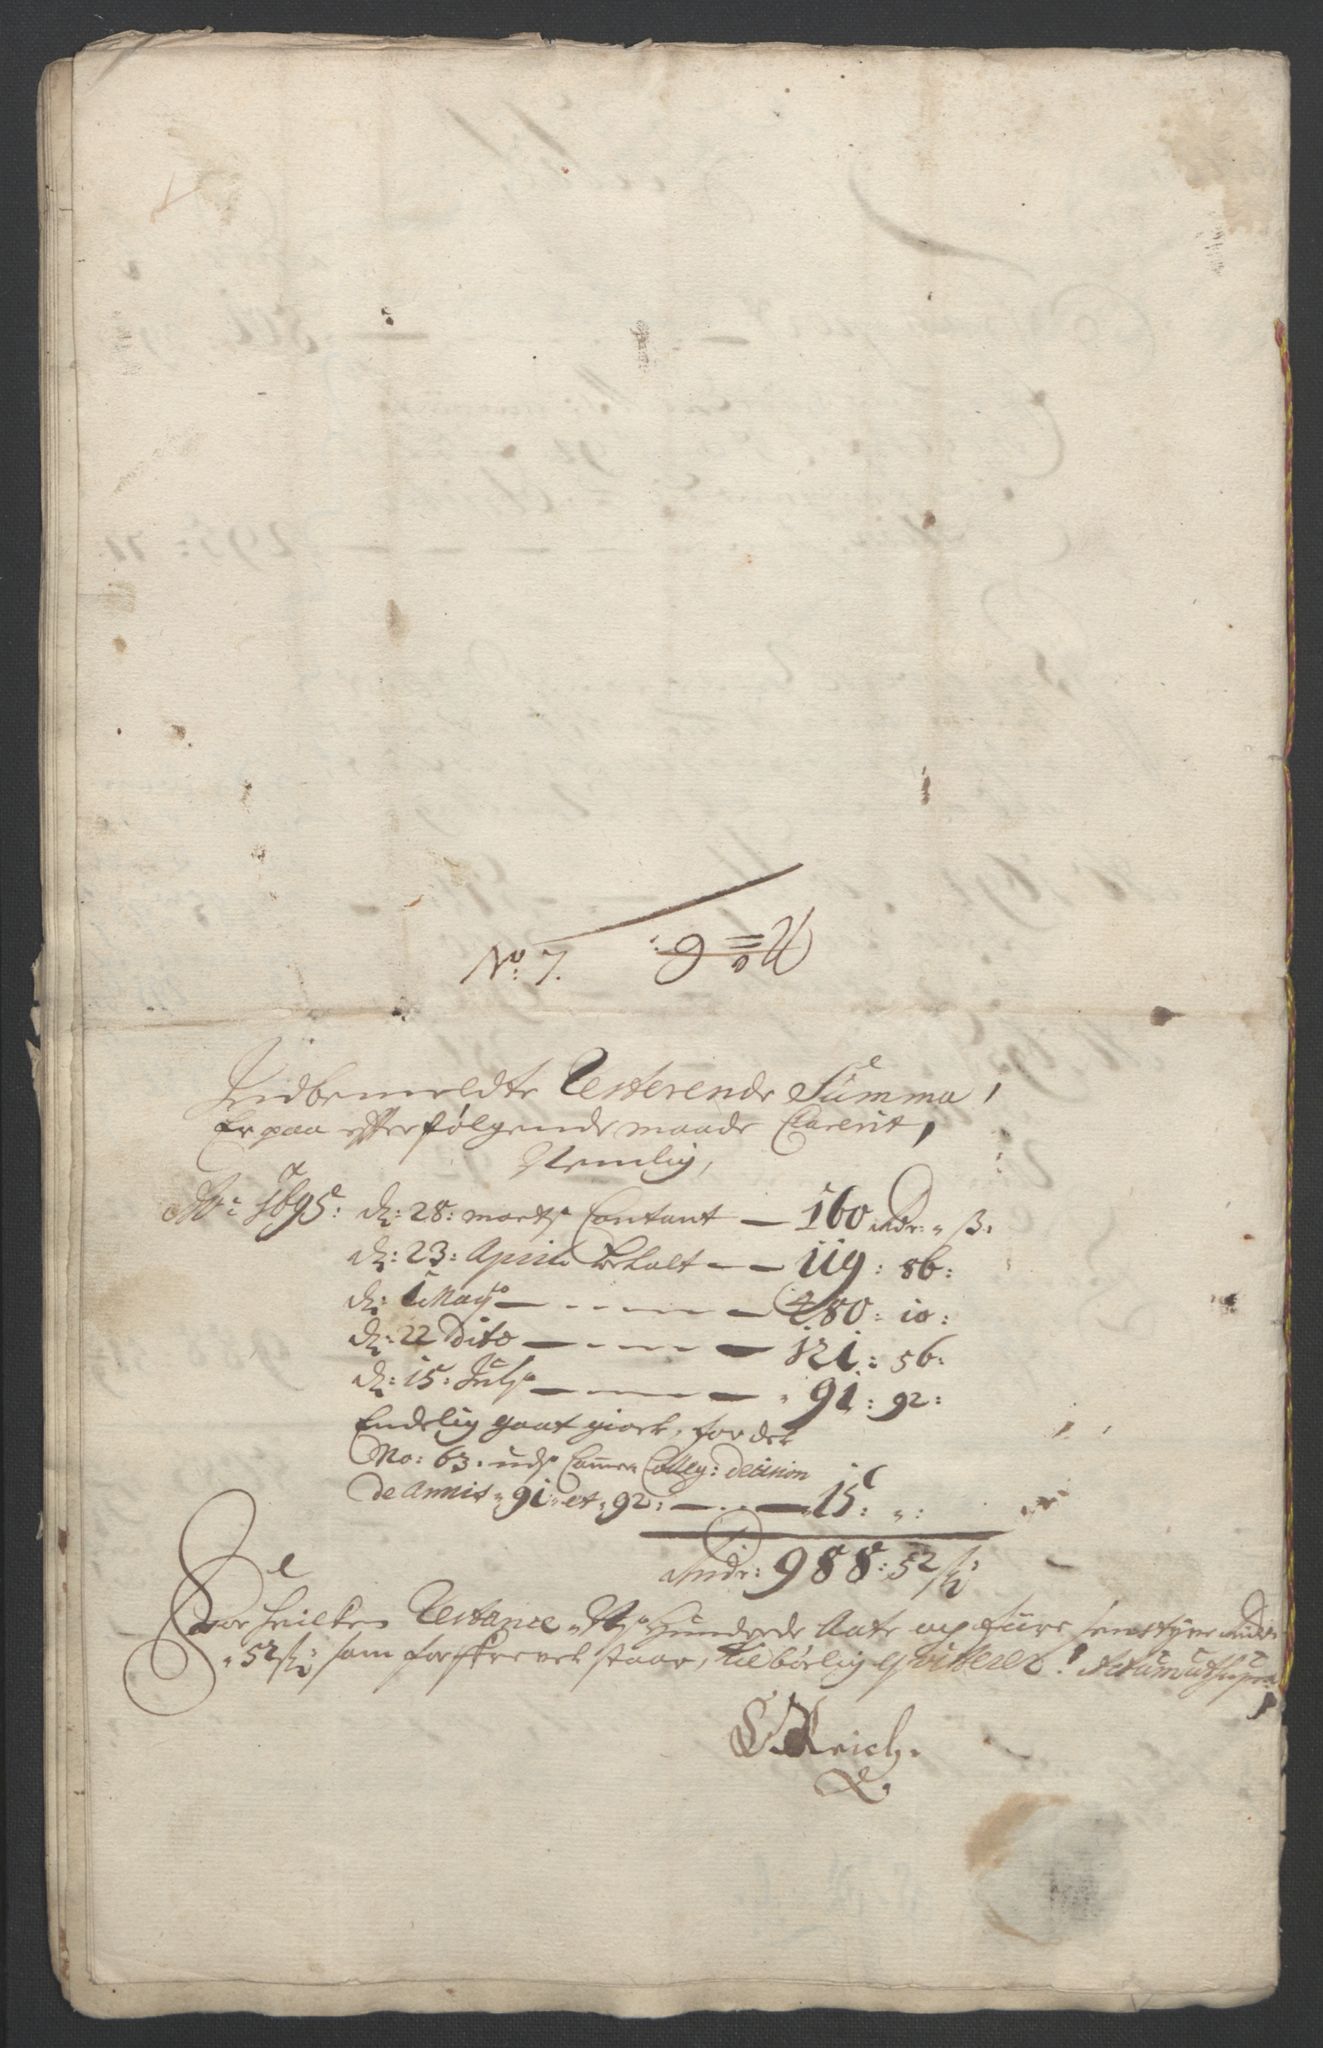 No: 7.
Indbemeldte Resterende Summa,
Er paa efterfølgende maade Clarerit,
Nemlig,
Ao: 1695: dn: 28: marts Contant — 160 Rdr: „ ß:
dn: 23: Aprili betalt — 119: 86:
dn: 1 May — 480: 10:
dn: 22 Dito — 121: 56:
dn: 15: July — „ 91: 92:
Endelig gaat giort, for det
No: 63. uds Camer Colleg: decision
de Annis „ 91 „ et „ 92: — 15: „:
Rdr: 988: 52 ß:
For hvilken Restance, Ni Hundrede Aate og fiire sinstyve Rdr
„ 52 ß: som forskrevet staar, tilbørlig qvitterer! Actum ut supra
Reich.